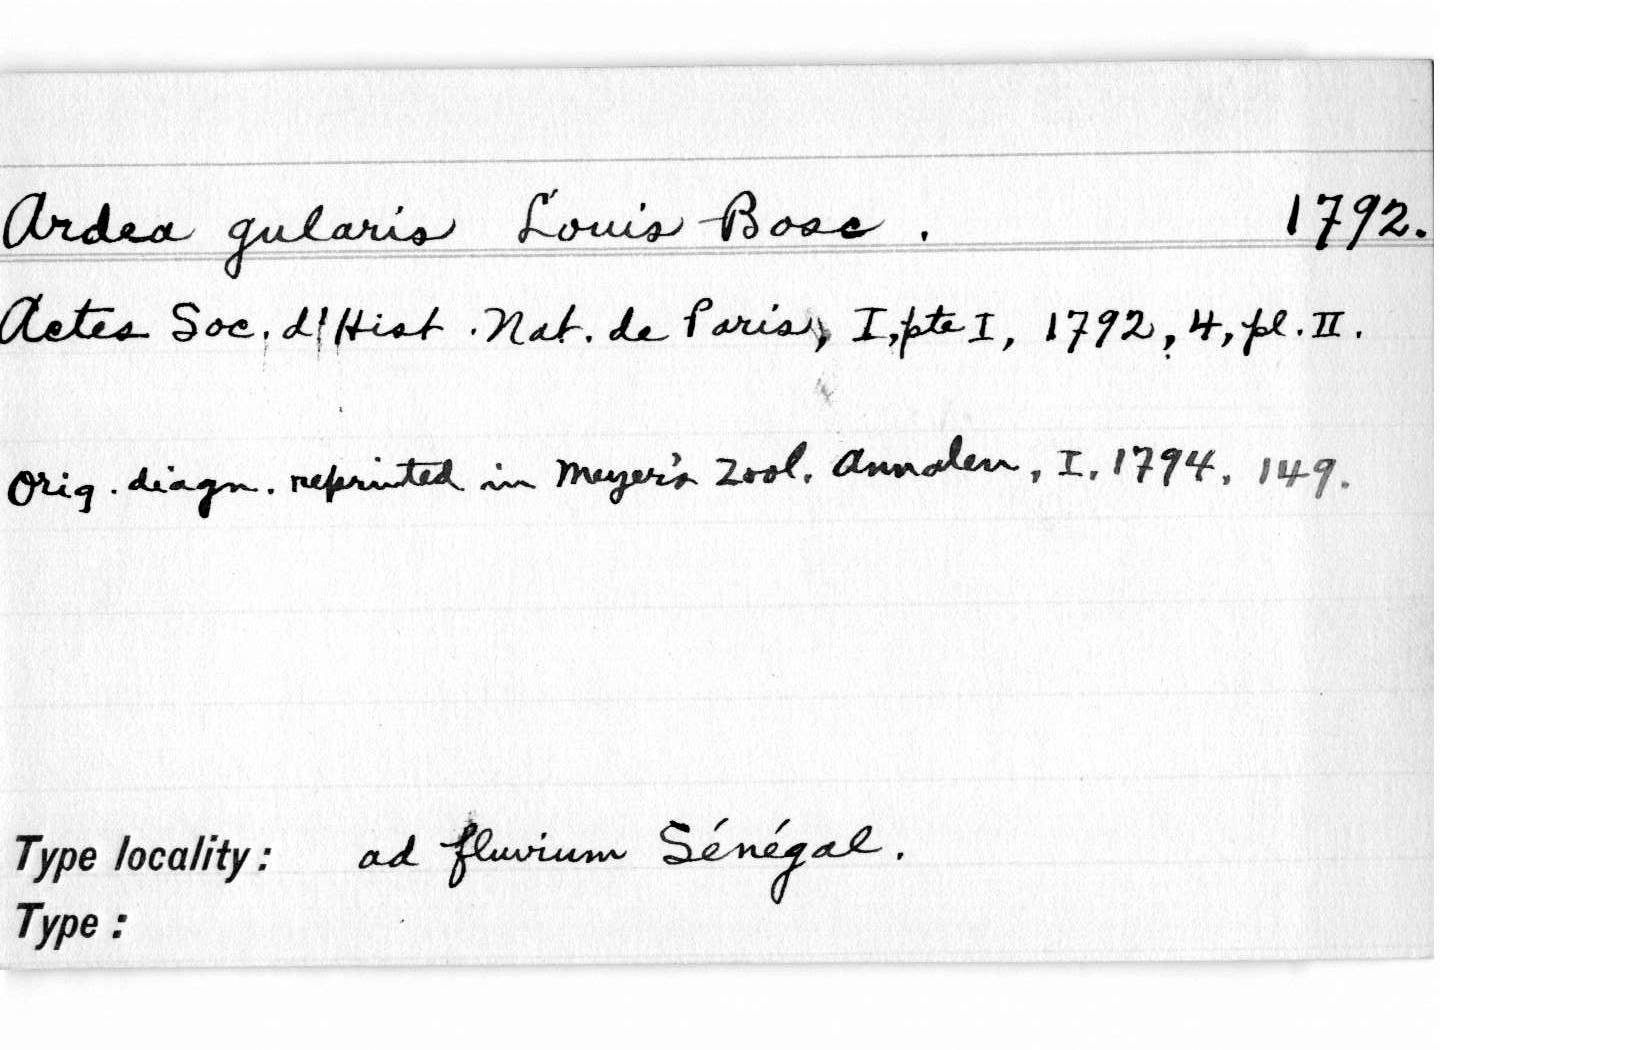 Ardea gularis Louis Bosc. 1792.
Actes Soc. d'Hist. Nat. de Paris, I, pte I, 1792, 4, pl. II.
Orig. diagn. reprinted in Meyer's Zool. Annalen, I, 1794, 149.
Type locality: ad fluvium Sénégal.
Type: